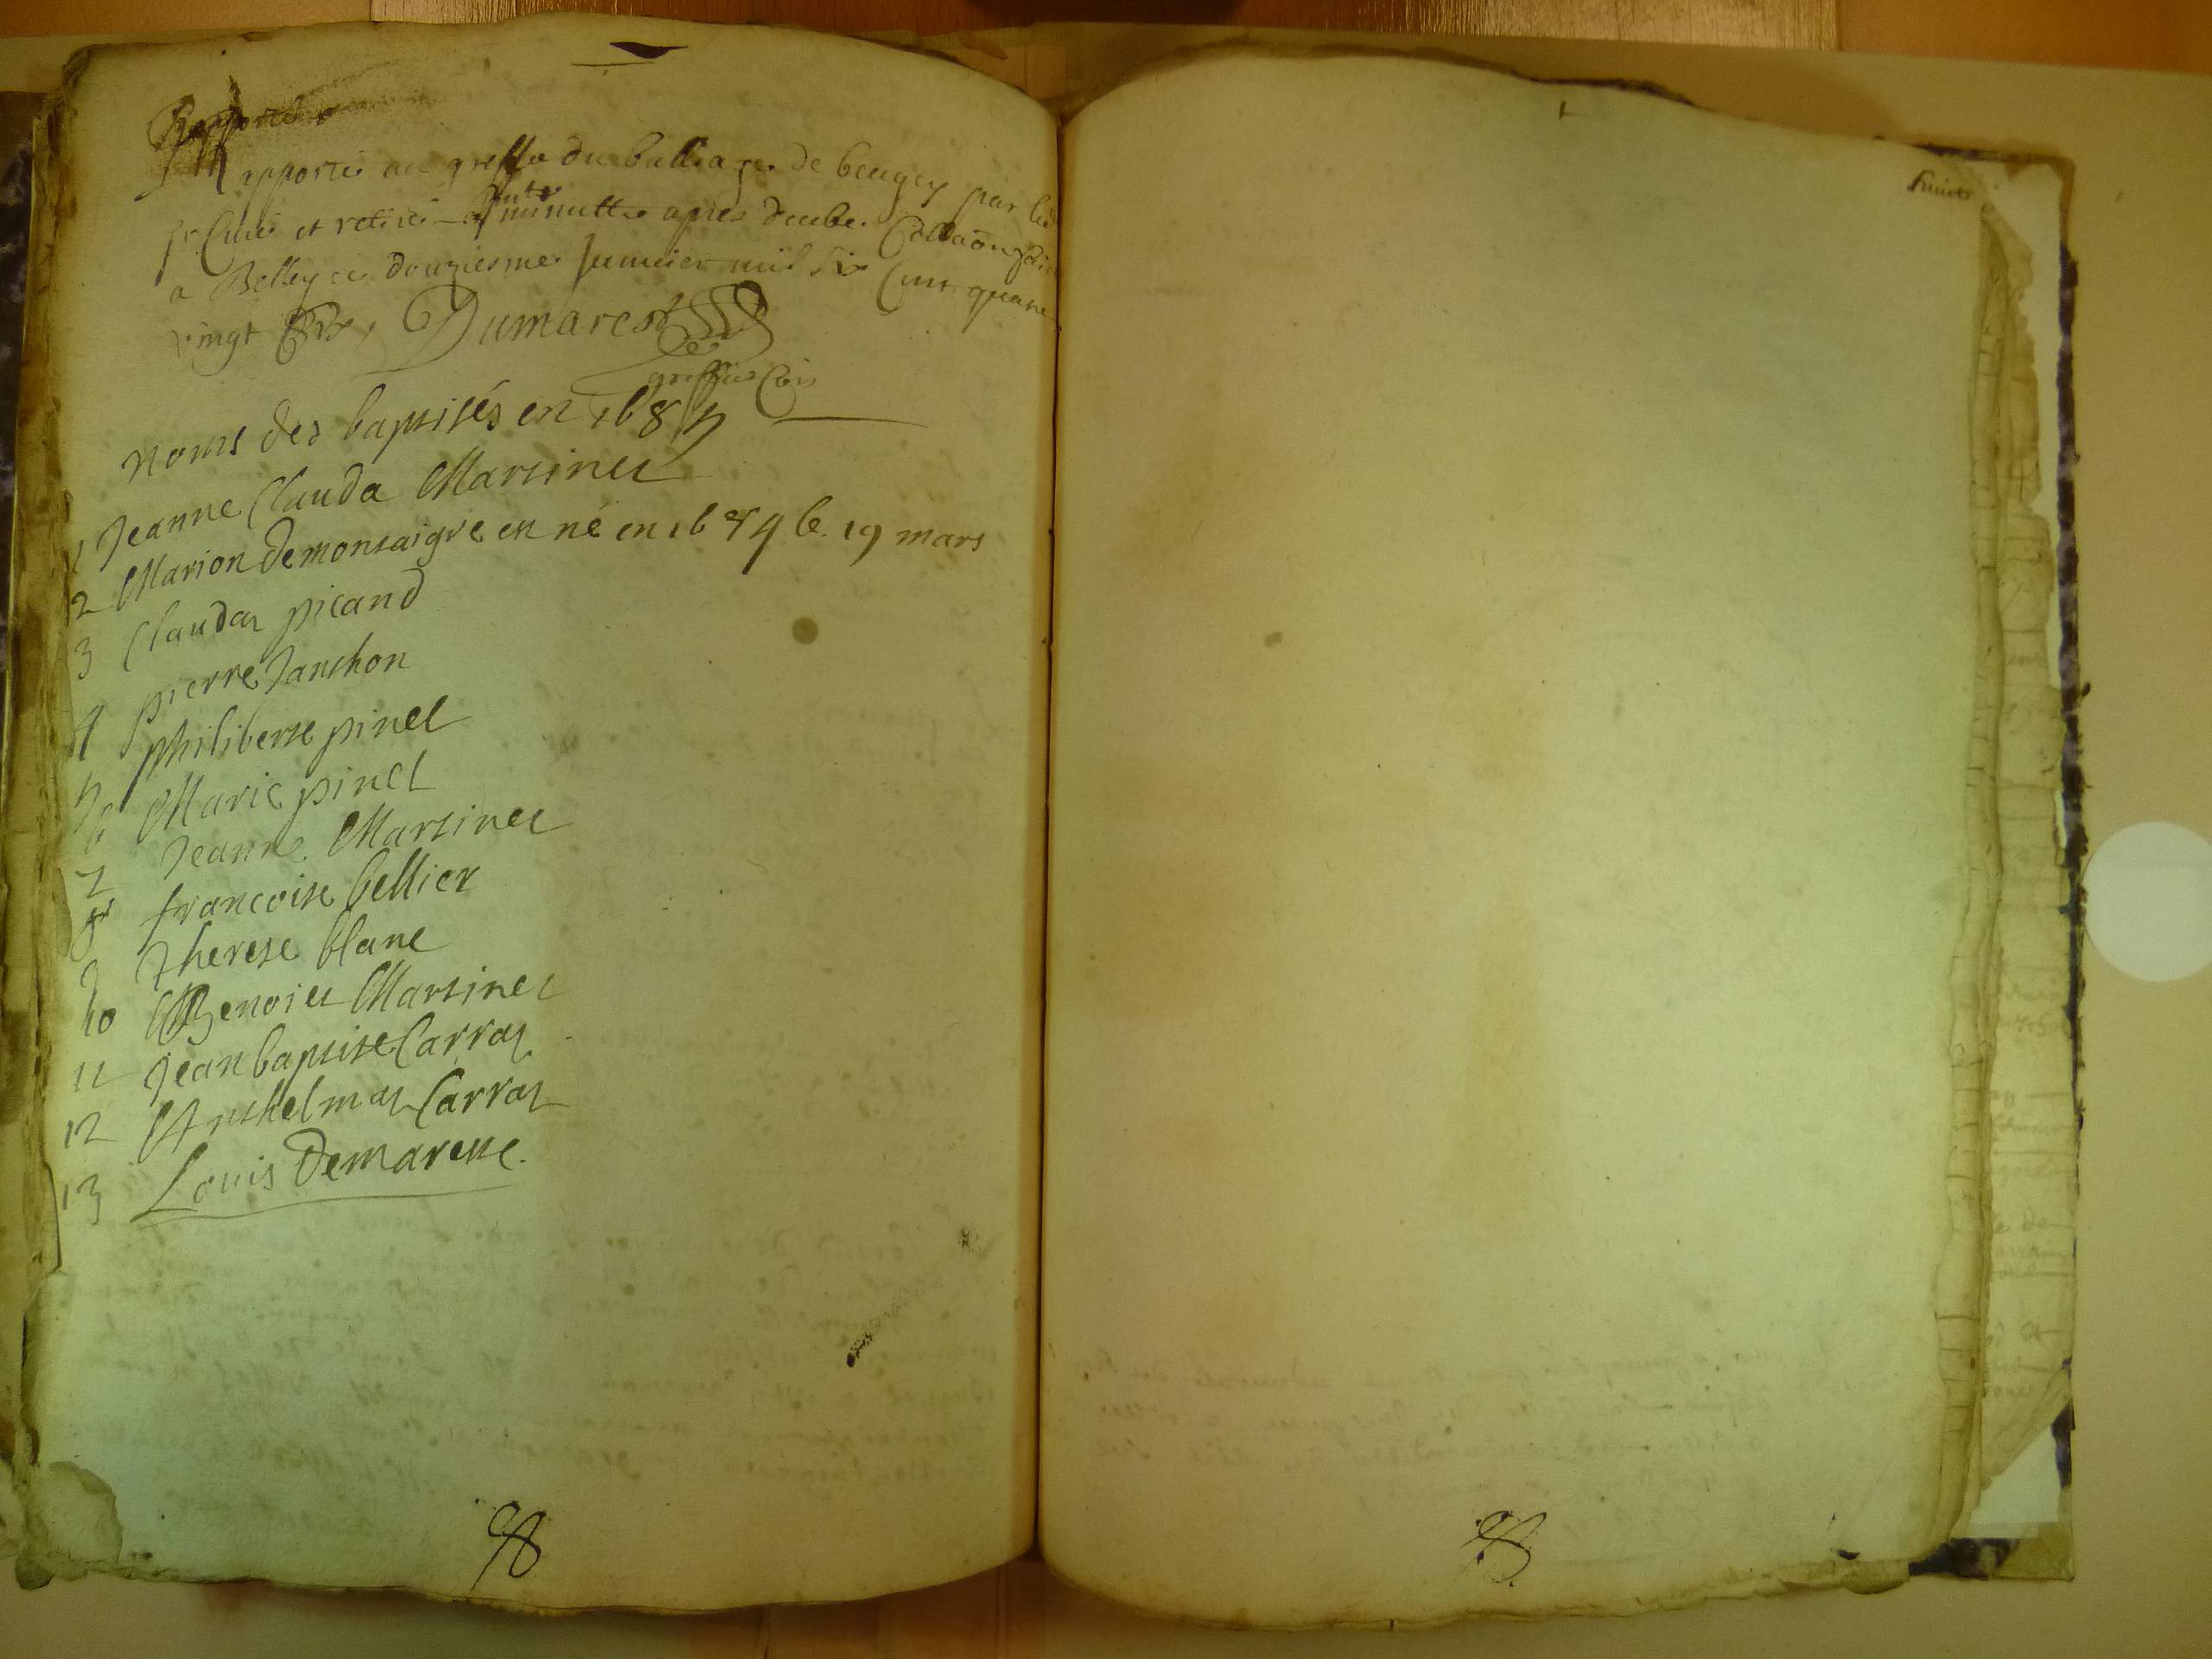 Rapporté
Rapporté au greffe du balliage de beugey par led
sr Curé et retiré minutte apres deube Collaon
a Belley ce douziesme Januier mil six Cent quatre
vingt Six, Dumarest
greffier
noms des baptisés en 1685
1 Jeanne Clauda Martinet
2 Marion demontaigre en né en 1684 le 19 mars
3 Claudaz picand
4 pierre Janthon
5 philiberte pinel
6 Marie pinel
7 Jeanne Martinet
8 francoise bellier
9 therese blanc
10 Benoict Martinet
11 Jean baptiste Carraz
12 Anthelmaz Carraz
13 Louis Demareste.